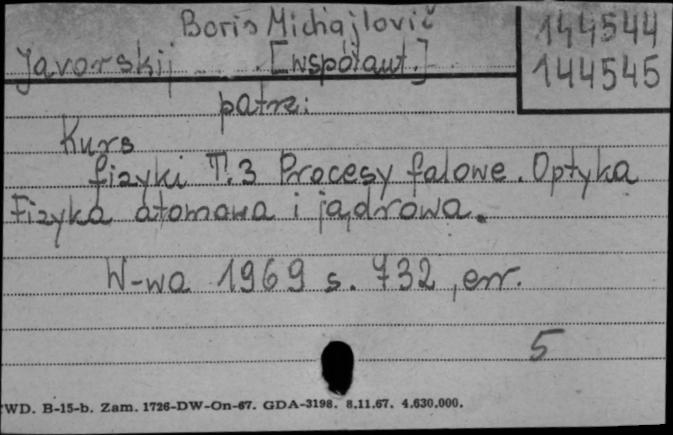 Boris Michajlovič 144544
Javorskij [współaut.] 144545
patrz:
Kurs
fizyki T.3 Procesy falowe. Optyka
Fizyka atomowa i jądrowa.
W-wa 1969 s. 732, err.
5
WD. B-15-b. Zam. 1726-DW-On-67. GDA-3198. 8.11.67. 4.630.000.